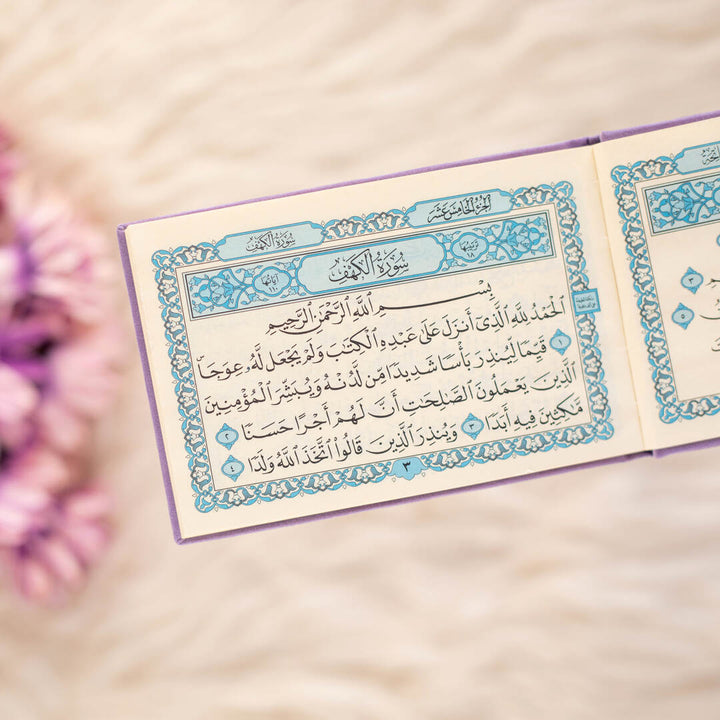 الجزء الخامس عشر
سورة الكهف
ترتيبها ١٨
سورة الكهف
آياتها ١١٠
بِسْمِ اللَّهِ الرَّحْمَنِ الرَّحِيمِ
الْحَمْدُ لِلَّهِ الَّذِي أَنْزَلَ عَلَى عَبْدِهِ الْكِتَبَ وَلَمْ يَجْعَلْ لَهُ عِوَجَا ۜ ١
قَيِّمًا لِيُنْذِرَ بَأْسًا شَدِيدًا مِنْ لَدُنْهُ وَيُبَشِّرَ الْمُؤْمِنِينَ
الَّذِينَ يَعْمَلُونَ الصَّالِحَتِ أَنَّ لَهُمْ أَجْرًا حَسَنًا ٢
مَكِثِينَ فِيهِ أَبَدًا ٣ وَيُنْذِرَ الَّذِينَ قَالُوا اتَّخَذَ اللَّهُ وَلَدًا ٤
٣
٣
٥